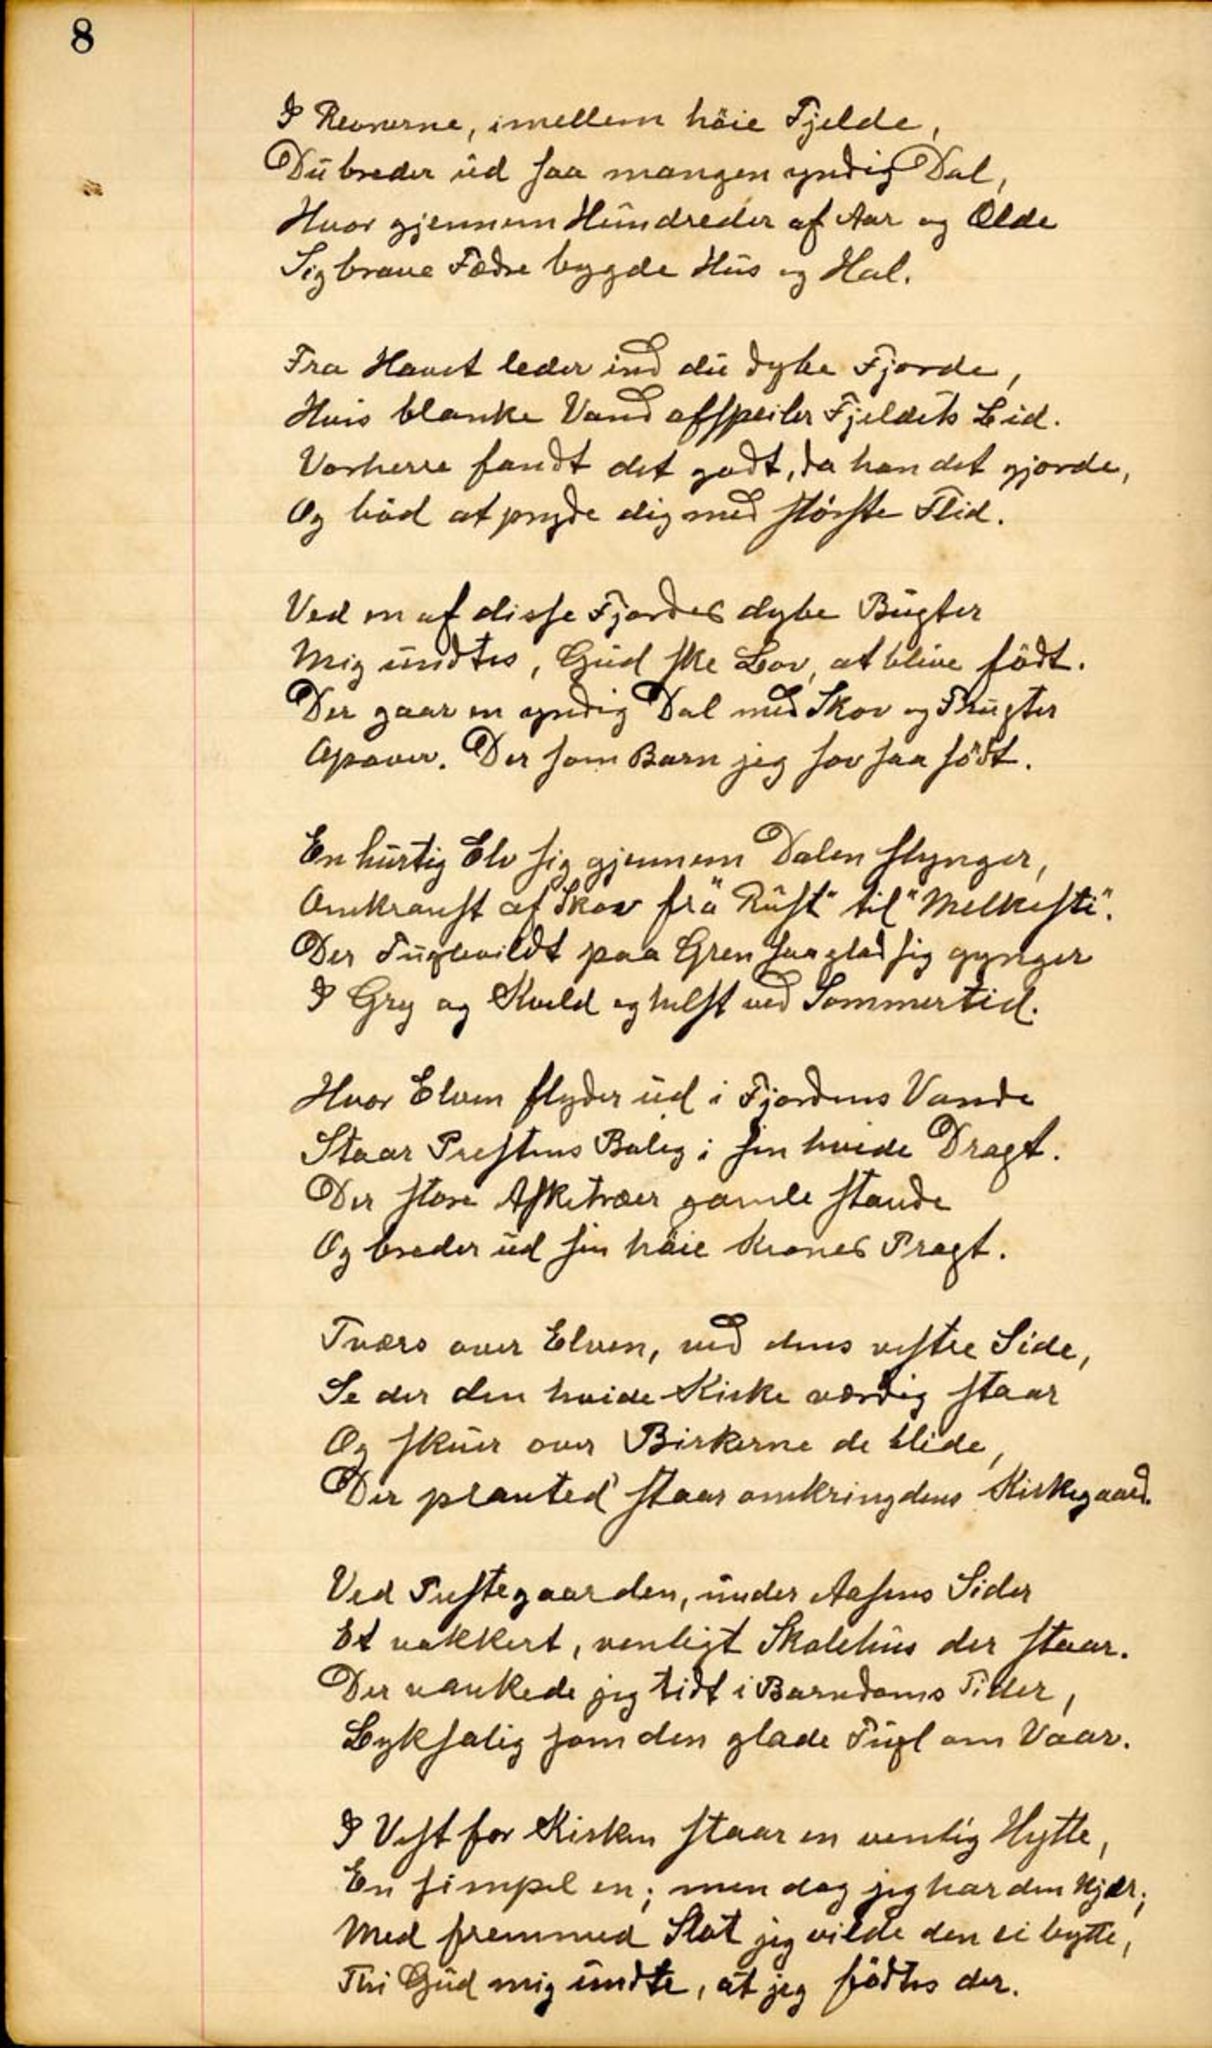 8
I Revnerne, imellem höie Fjelde,
Du breder ud saa mangen yndig Dal,
Hvor gjennem Hundreder af Aar og Ælde
Sig brave Fædre bygde Hus og Hal.
Fra Havet leder ind du dybe Fjorde,
Hvis blanke Vand afspeiler Fjeldets Lid.
Vorherre fandt det godt, da han det gjorde,
Og böd at pryde dig med störste Flid.
Ved en af disse Fjordes dybe Bugter
Mig undtes, Gud ske Lov, at blive födt.
Der gaar en yndig Dal med Skov og Frugter
Opover. Der som Barn jeg sov saa södt.
En hurtig Elv sig gjennem Dalen slynger,
Omkranst af Skov fra "Rust" til "Melkesti".
Der Fuglevildt paa Gren saa glad sig gynger
I Gry og Kveld og helst ved Sommertid.
Hvor Elven flyder ud i Fjordens Vande
Staar Prestens Bolig i sin hvide Dragt.
Der store Asketræer gamle stande
Og breder ud sin höie Krones Pragt.
Tværs over Elven, ved dens vestre Side,
Se der den hvide Kirke værdig staar
Og skuer over Birkerne de blide,
Der planted' staar omkring dens Kirkegaard.
Ved Prestegaarden, under Aasens Sider
Et vakkert, venligt Skolehus der staar.
Der vankede jeg tidt i Barndoms Tider,
Lyksalig som den glade Fugl om Vaar.
I Vest for Kirken staar en venlig Hytte,
En simpel en; men dog jeg har den kjær;
Med fremmed Slot jeg vilde den ei bytte,
Thi Gud mig undte, at jeg födtes der.